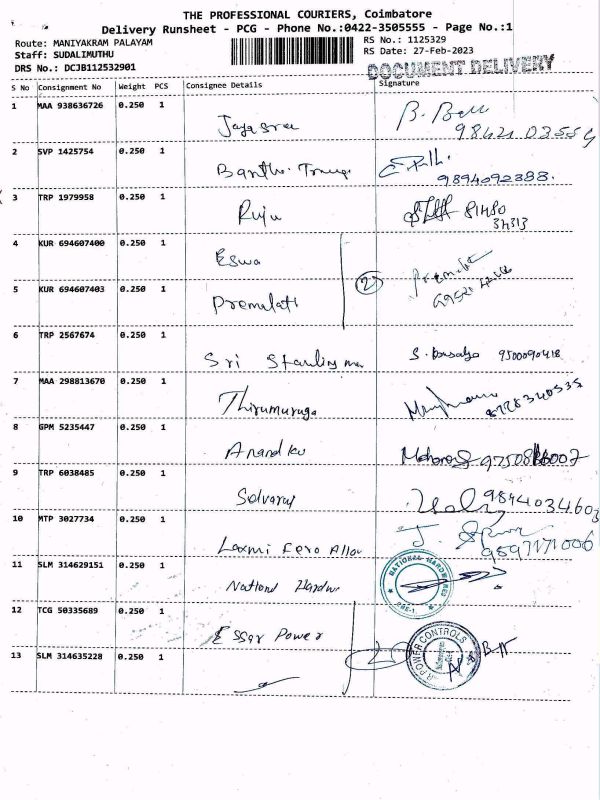 THE PROFESSIONAL COURIERS, Coimbatore
Delivery Runsheet - PCG - Phone No.:0422-3505555 - Page No.:1
Route: MANIYAKRAM PALAYAM RS No.: 1125329
Staff: SUDALIMUTHU RS Date: 27-Feb-2023
DRS No.: DCJB112532901 DOCUMENT DELIVERY
S No Consignment No Weight PCS Consignee Details Signature
1 MAA 938636726 0.250 1 Jayasree
2 SVP 1425754 0.250 1 9894092383.
3 TRP 1979958 0.250 1 Riju 81480
34313
4 KUR 694607400 0.250 1 Eswa
5 KUR 694607403 0.250 1 Premalati 2
6 TRP 2567674 0.250 1 Sri 9500090418
7 MAA 298813670 0.250 1 Thirumuruga
8 GPM 5235447 0.250 1 Anand
9 TRP 6038485 0.250 1 Selvaraj 9844034603
10 MTP 3027734 0.250 1 Laxmi Fero Alloy
11 SLM 314629151 0.250 1 National Hardw NATIONAL HARDWARES
12 TCG 50335689 0.250 1 Essar Power
13 SLM 314635228 0.250 1 POWER CONTROLS